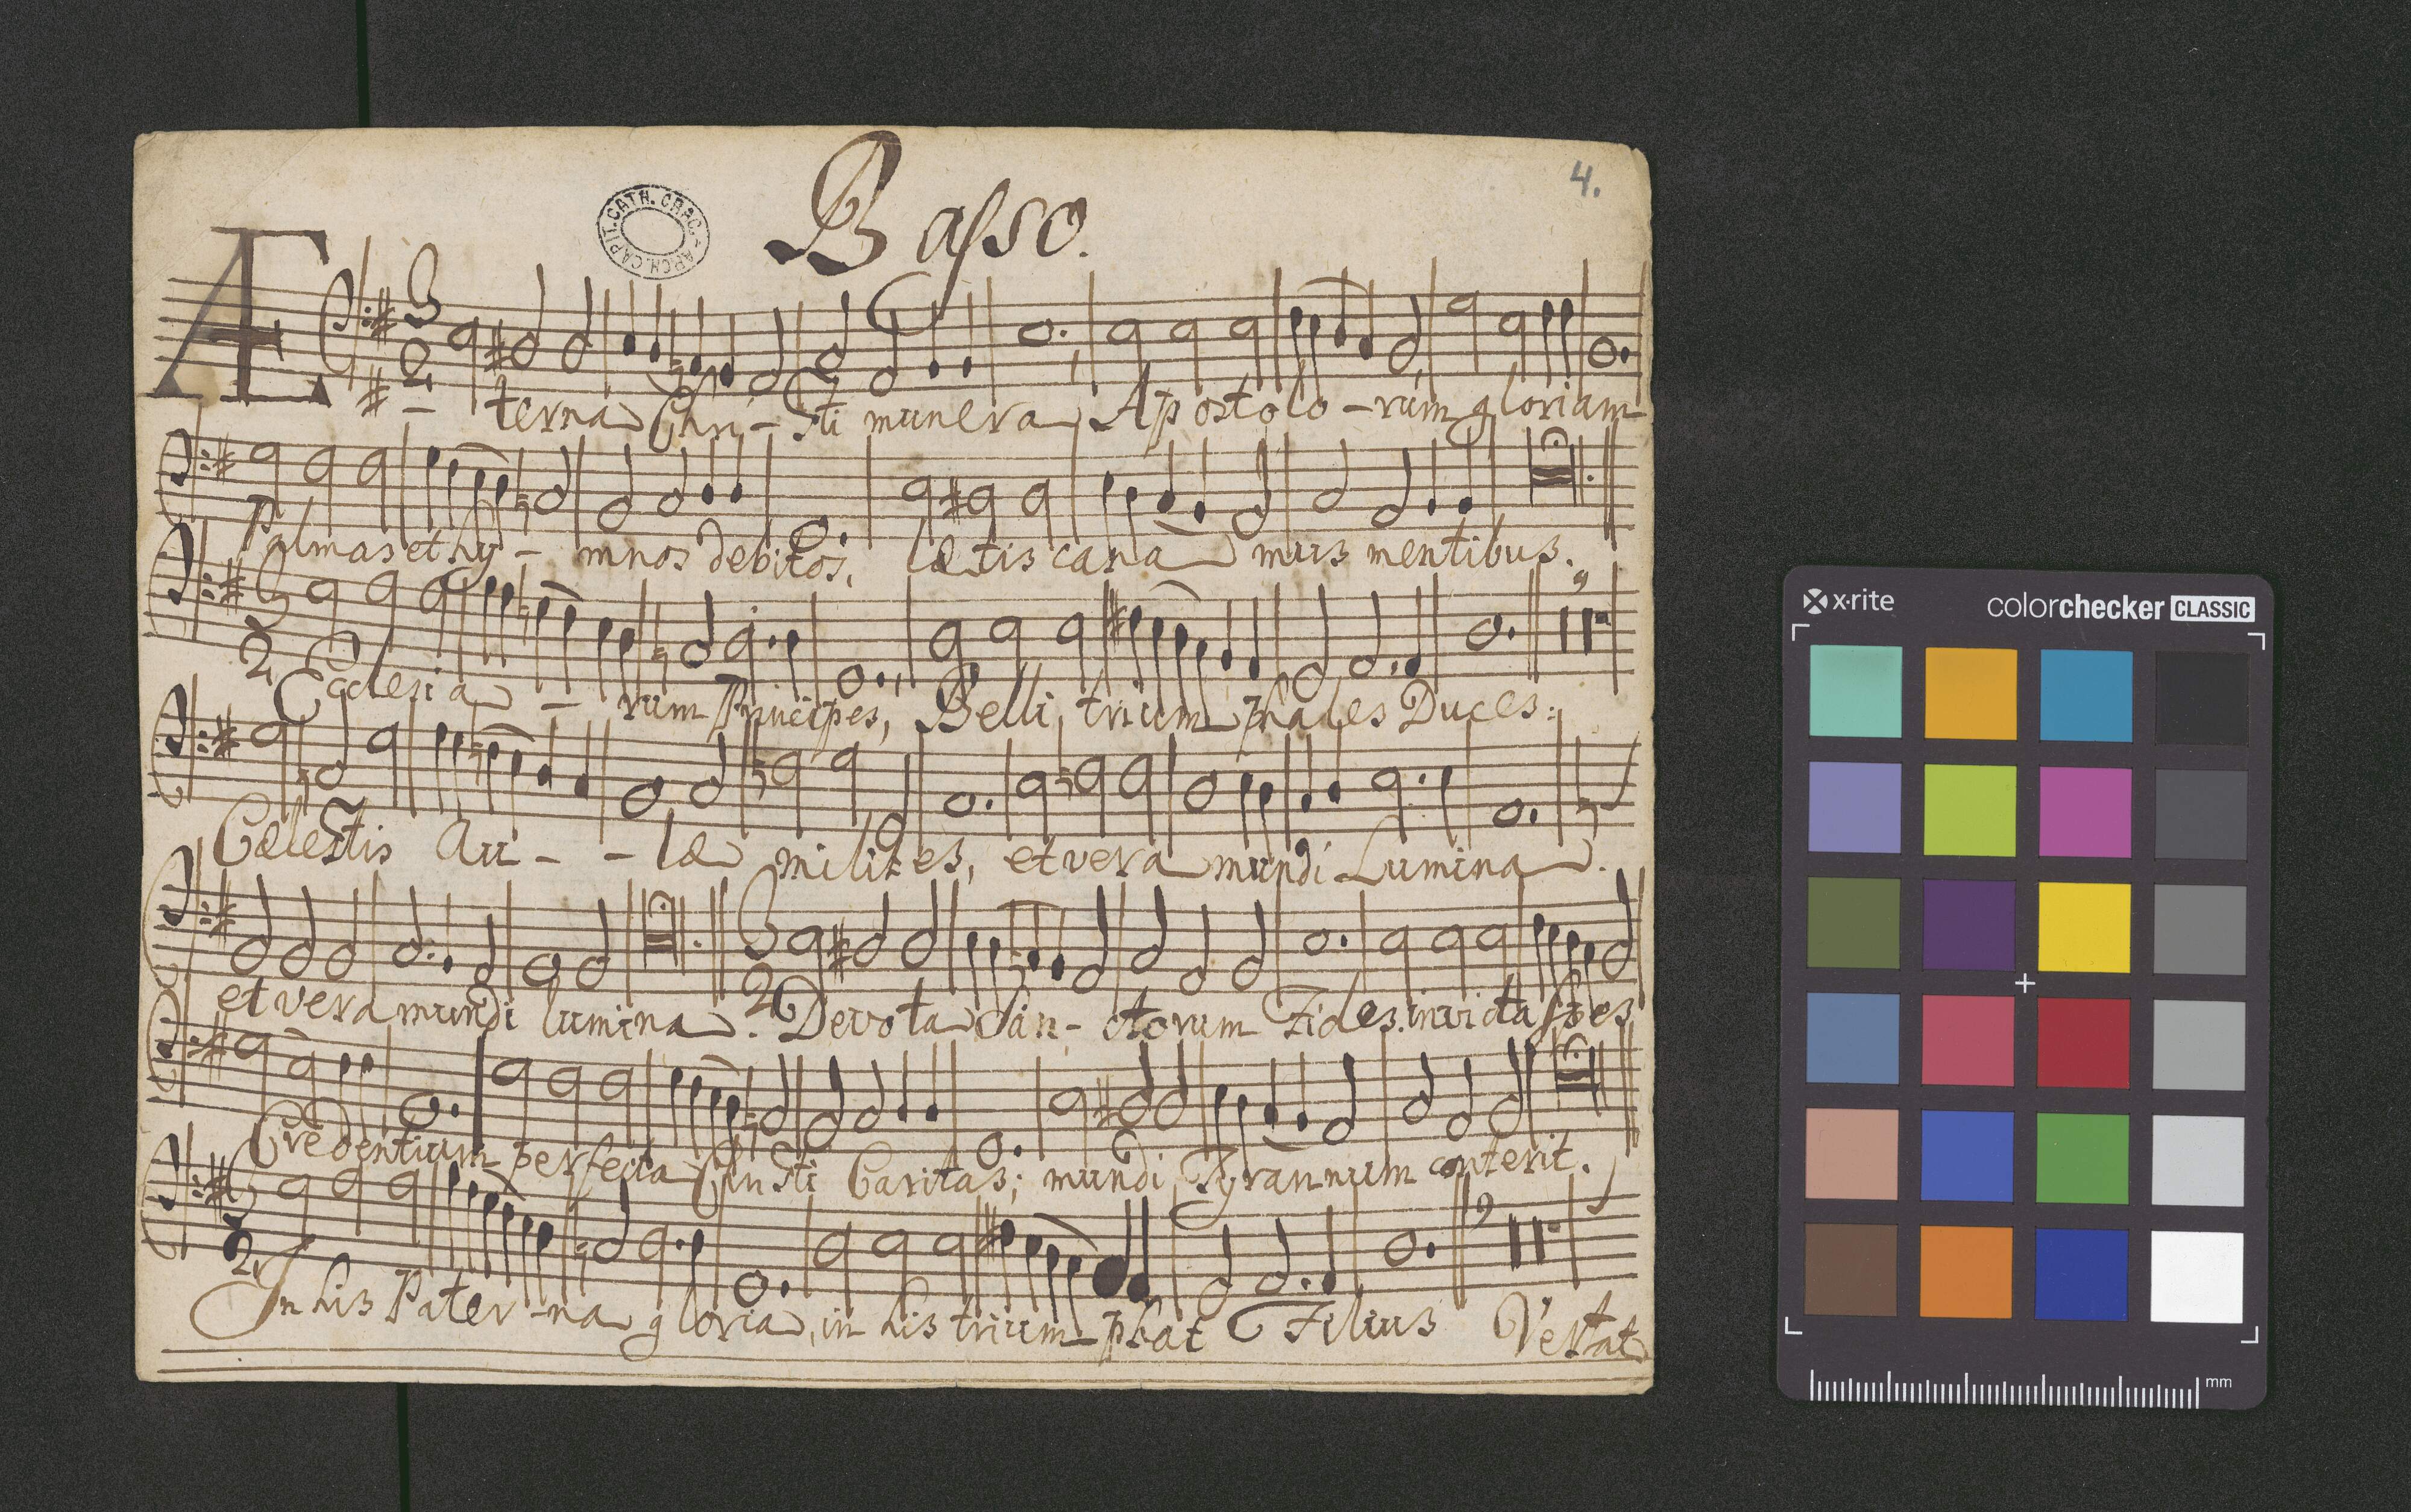 4.
Basso.
ARCH. CAPIT. CATH. CRAC.
Æ - terna Chri - sti munera Apostolo - rum gloriam
Palmas et hy - mnos debitos, lætis cana mus mentibus.
Ecclesia - rum Principes, Belli trium phales Duces:
Cælestis Au - - læ milites, et vera mundi Lumina.
et vera mundi lumina. Devota San - ctorum Fides. invicta spes
Credentium perfecta Chri sti Caritas; mundi Tyrannum conterit.
In his Pater - na gloria, in his trium - phat Filius Vertat
x·rite
colorchecker CLASSIC
mm